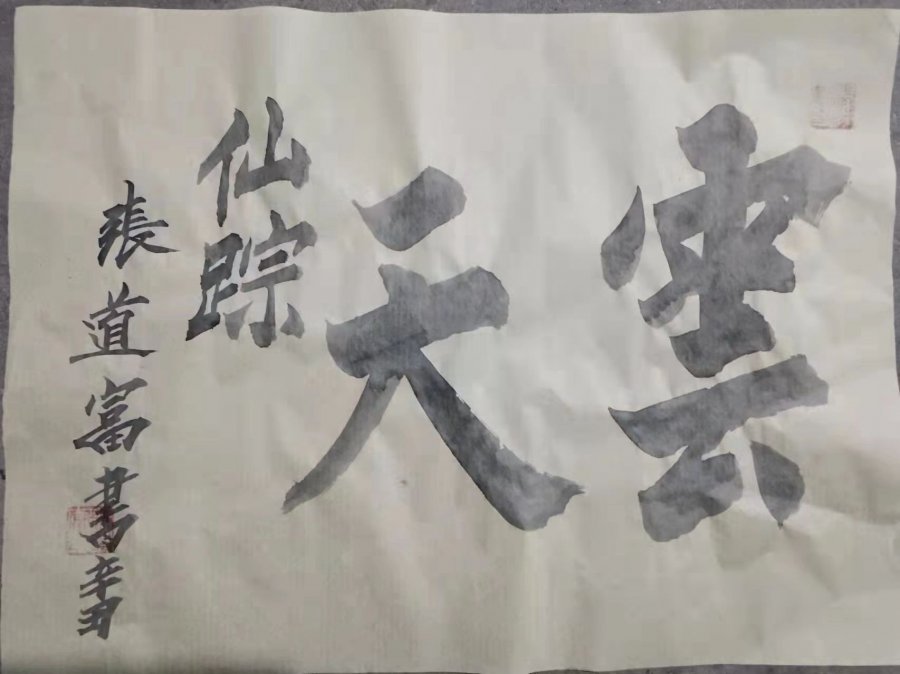 雲天
仙踪
張道富書辛丑